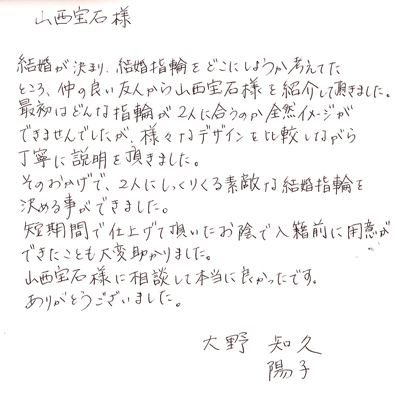 山西宝石様
結婚が決まり、結婚指輪をどこにしようか考えてた
ところ、仲の良い友人から山西宝石様を紹介して頂きました。
最初はどんな指輪が2人に合うのか全然イメージが
できませんでしたが、様々なデザインを比較しながら
丁寧に説明を頂きました。
そのおかげで、2人にしっくりくる素敵な結婚指輪を
決める事ができました。
短期間で仕上げて頂いたお陰で入籍前に用意が
できたことも大変助かりました。
山西宝石様に相談して本当に良かったです。
ありがとうございました。
大野 知久
陽子